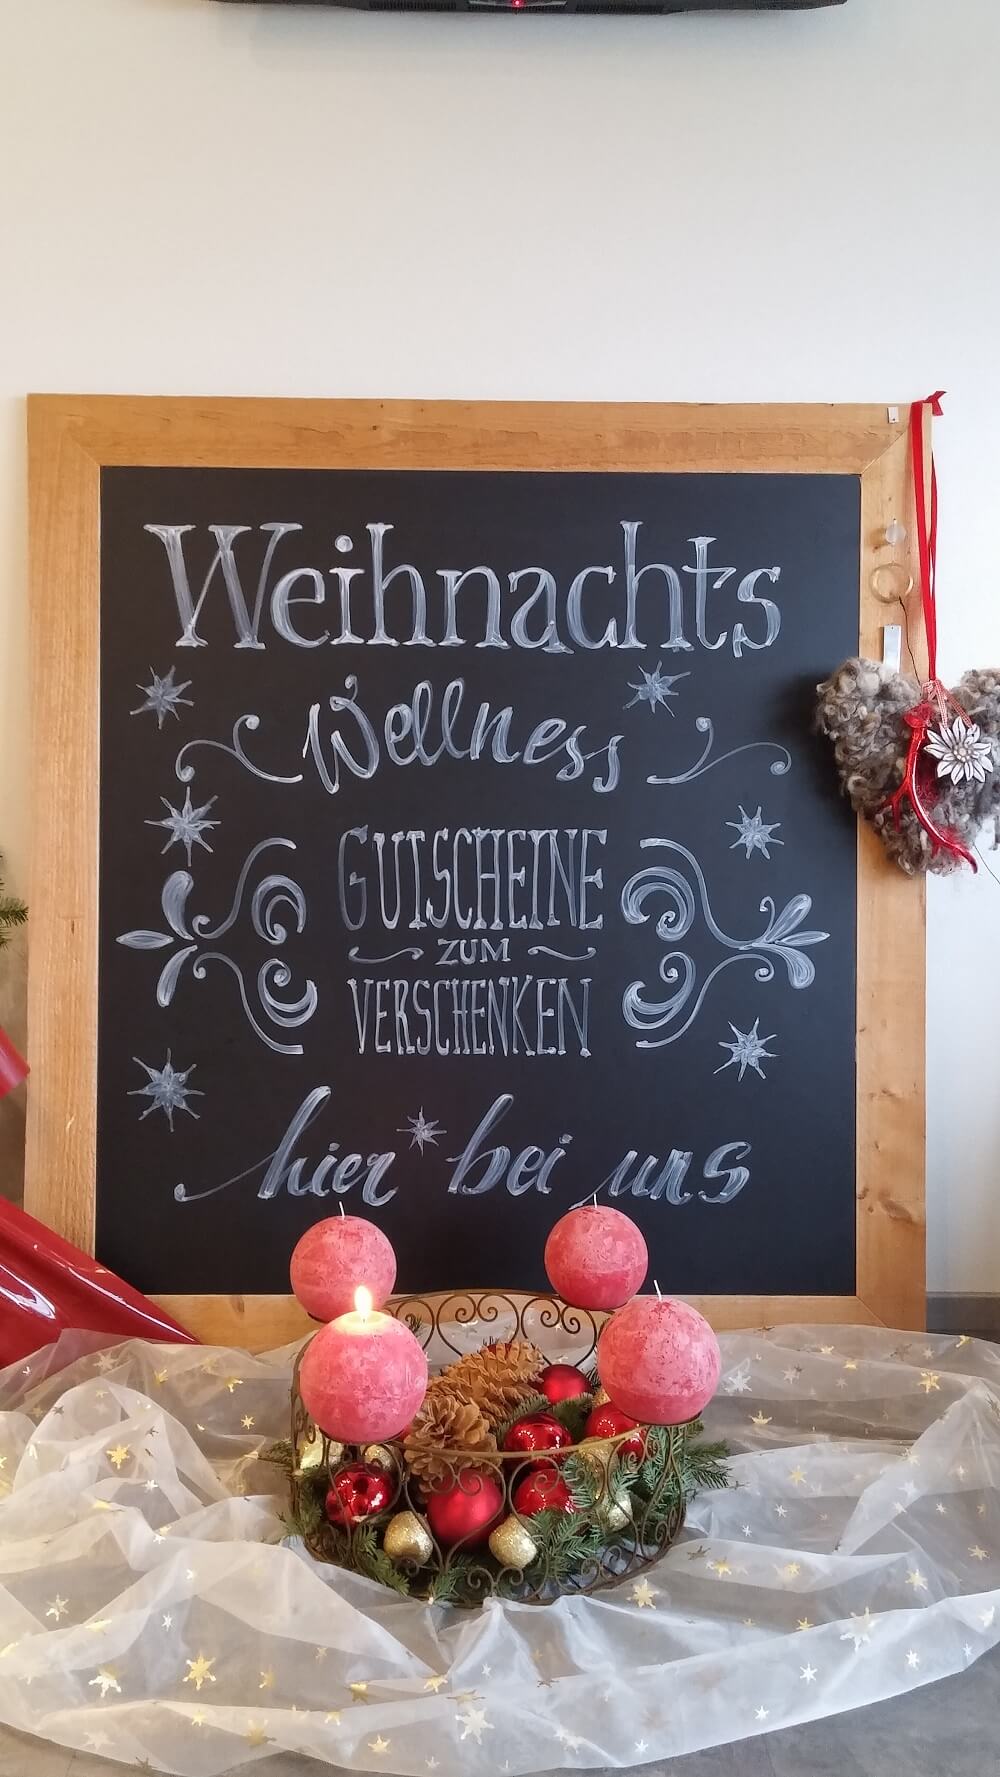 Weihnachts
Wellness
GUTSCHEINE
ZUM
VERSCHENKEN
hier bei uns